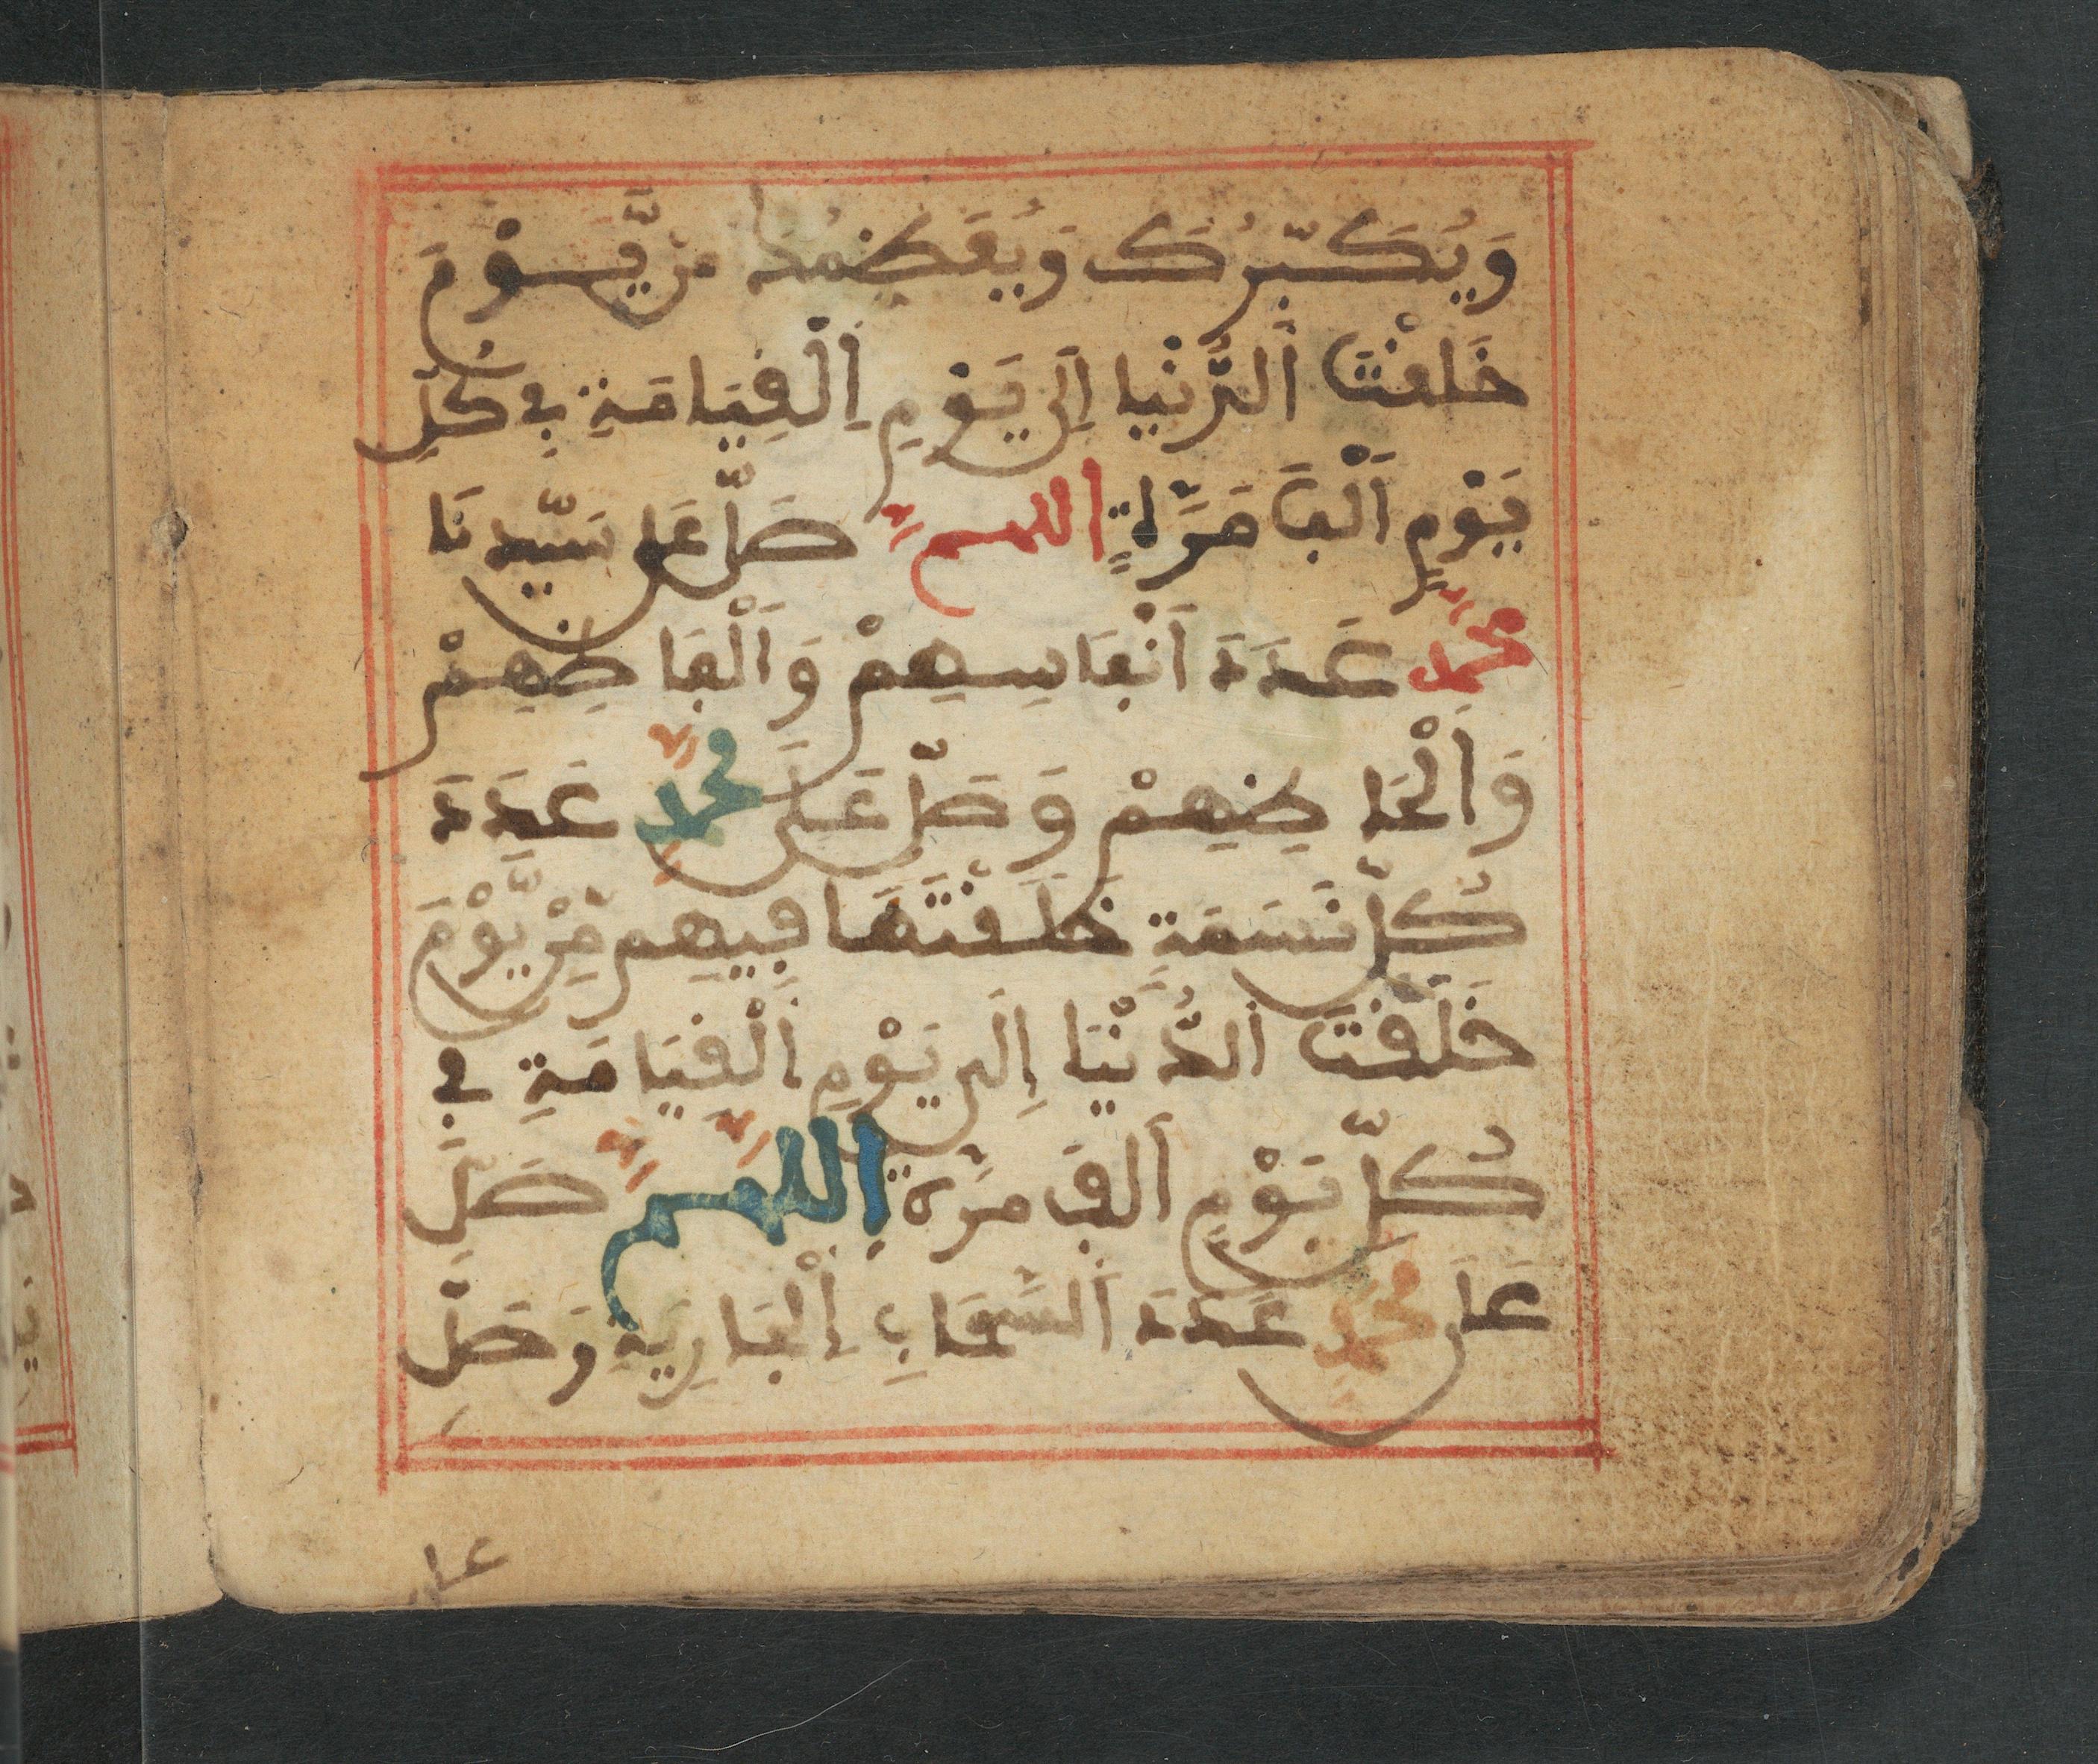 وَيُكَبِّرُكَ وَيُعَظِّمُكَ مِن يَّوْمَ
خَلَقْتَ اَلدُّنْيَا إِلَى يَوْمِ اِلْقِيَامَةِ فِي كُلِّ
يَوْمٍ اَلْفَ مَرَّةٍ اللهم صَلِّ عَلَى سَيِّدِنَا
مُحَمَّدٍ عَدَدَ أَنْفَاسِهِمْ وَأَلْفَاظِهِمْ
وَأَلْحَاظِهِمْ وَصَلِّ عَلَى مُحَمَّدٍ عَدَدَ
كُلِّ نَسَمَةٍ خَلَقْتَهَا فِيهِم مِّنْ يَّوْمَ
خَلَقْتَ اَلدُّنْيَا إِلَى يَوْمِ اِلْقِيَامَةِ فِي
كُلِّ يَوْمٍ أَلْفَ مَرَّةٍ اللَّهُمَّ صَلِّ
عَلَى مُحَمَّدٍ عَدَدَ اَلسَّحَابِ اِلْجَارِيَةِ وَصَلِّ
علی